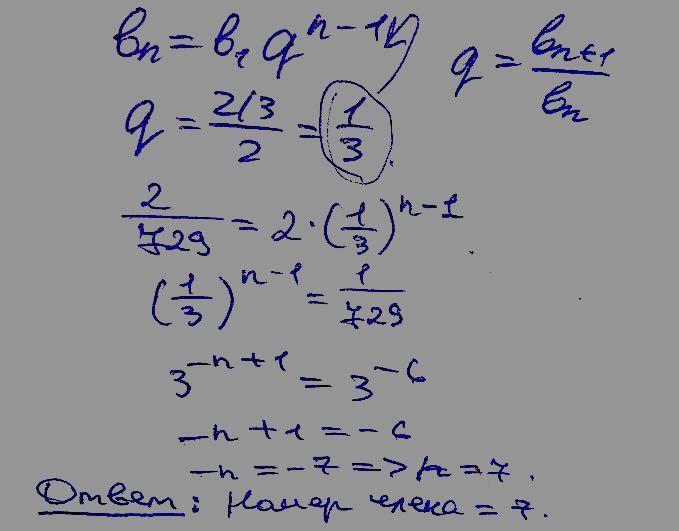 bₙ = b₁ qⁿ⁻¹
q = bₙ₊₁/bₙ
q = (2/3)/2 = 1/3.
2/729 = 2·(1/3)ⁿ⁻¹
(1/3)ⁿ⁻¹ = 1/729
3⁻ⁿ⁺¹ = 3⁻⁶
-n + 1 = -6
-n = -7 => n = 7.
Ответ: Номер члека = 7.